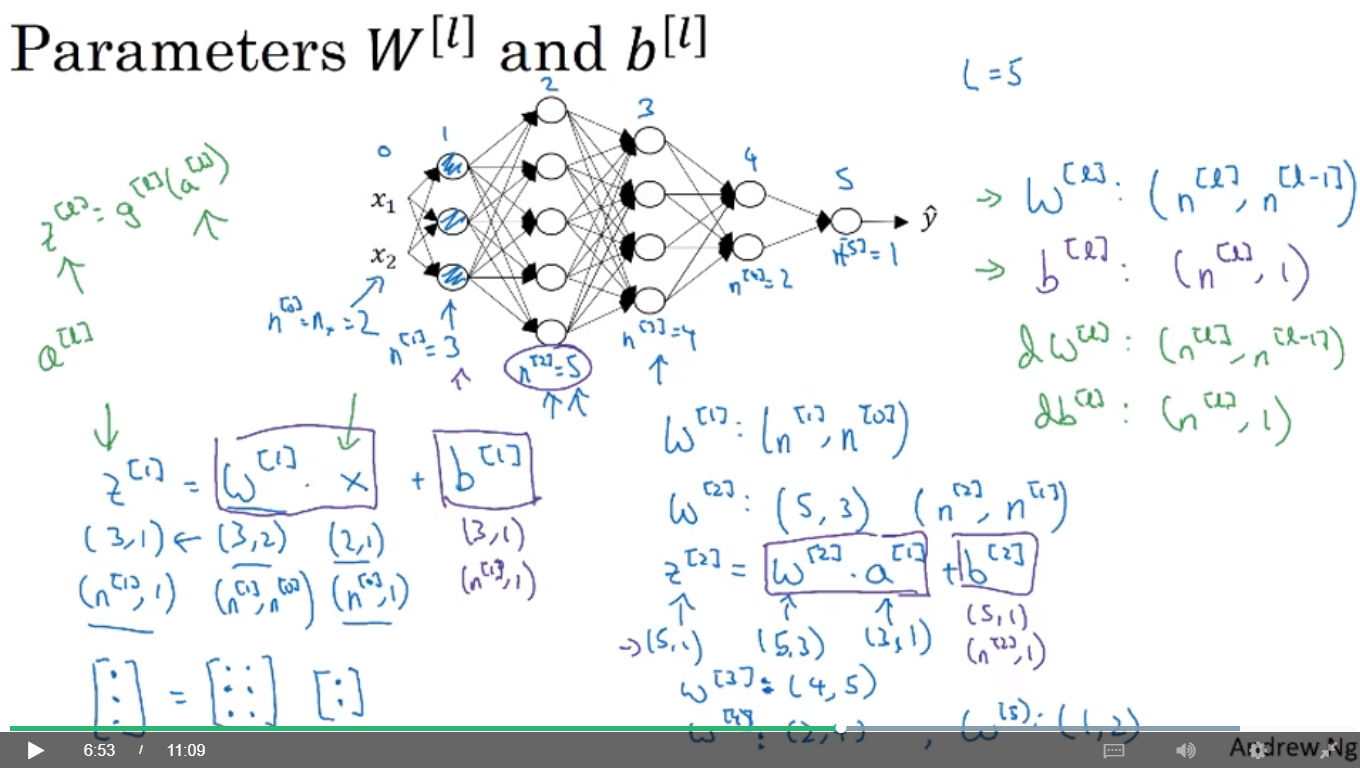 Parameters W^[l] and b^[l]
L = 5
0
1
2
3
4
5
x₁
x₂
ŷ
n^[0] = n_x = 2
n^[1] = 3
n^[2] = 5
n^[3] = 4
n^[4] = 2
n^[5] = 1
z^[l] = g^[l](a^[l])
a^[l]
→ W^[l] : (n^[l], n^[l-1])
→ b^[l] : (n^[l], 1)
dW^[l] : (n^[l], n^[l-1])
db^[l] : (n^[l], 1)
z^[1] = W^[1] · x + b^[1]
(3,1) ← (3,2) (2,1) (3,1)
(n^[1], 1) (n^[1], n^[0]) (n^[0], 1) (n^[1], 1)
W^[1] : (n^[1], n^[0])
W^[2] : (5, 3) (n^[2], n^[1])
z^[2] = W^[2] · a^[1] + b^[2]
→ (5,1) (5,3) (3,1) (5,1)
(n^[2], 1)
W^[3] : (4, 5)
W^[4] : (2, 4) , W^[5] : (1, 2)
6:53 / 11:09
Andrew Ng